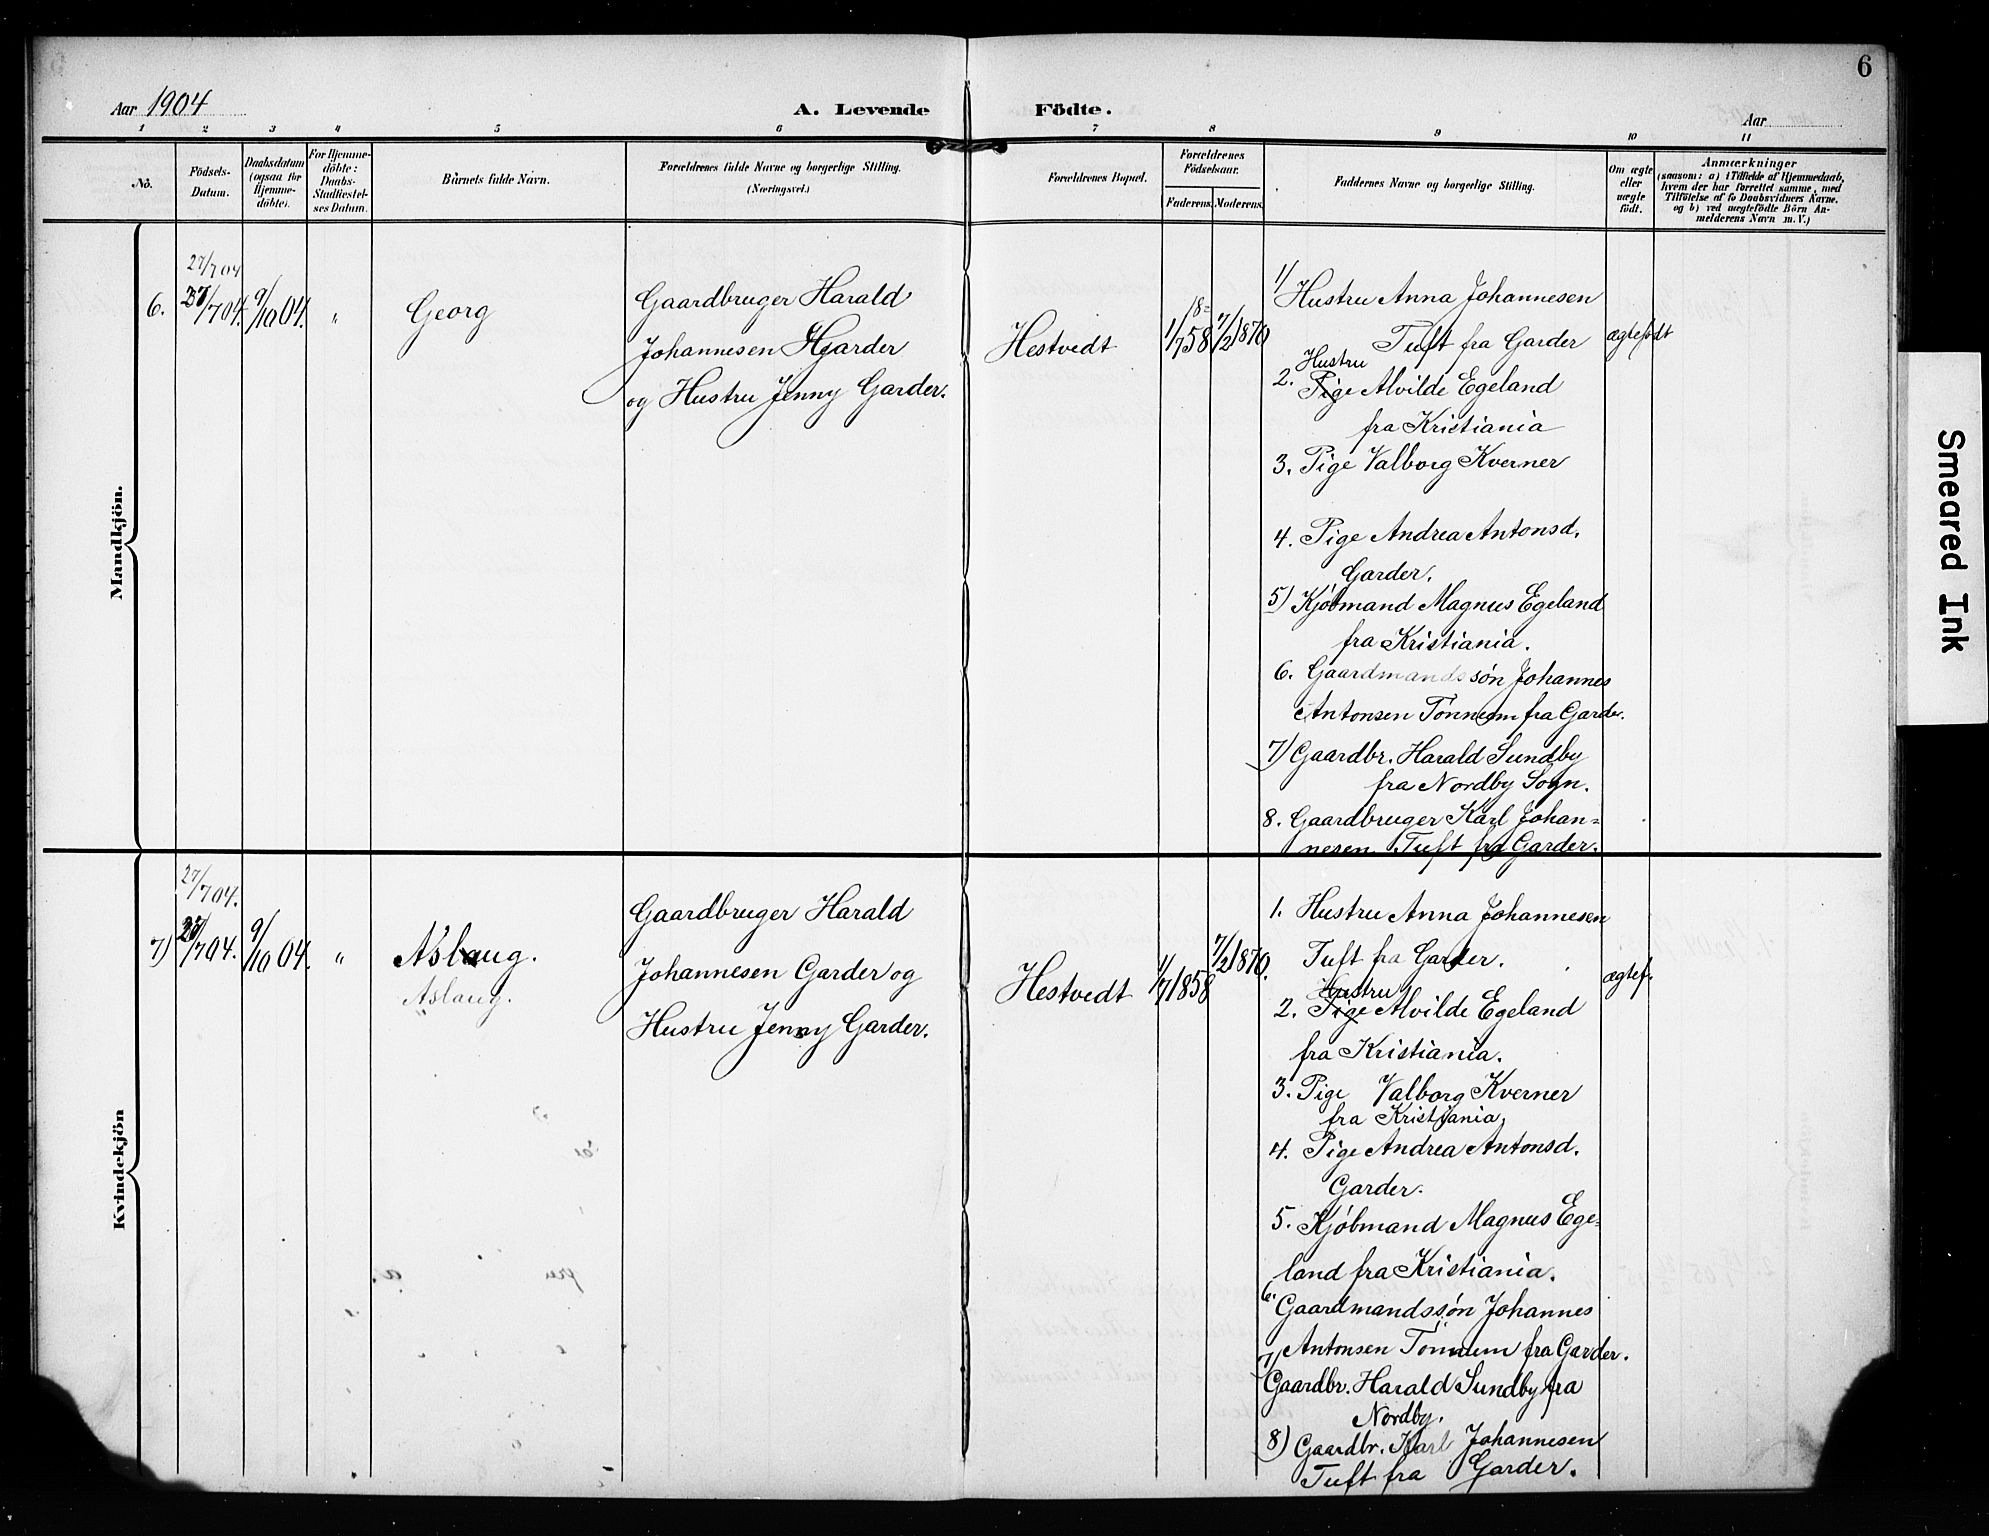 6
Aar 1904
A. Levende Födte.
Aar
1 2 3 4 5 6 7 8 9 10 11
No.
Födsels-
Datum.
Daabsdatum
(ogsaa for
Hjemme-
döbte).
For Hjemme-
döbte:
Daabs-
Stadfæstel-
ses Datum.
Barnets fulde Navn.
Forældrenes fulde Navne og borgerlige Stilling.
(Næringsvei.)
Forældrenes Bopæl.
Forældrenes
Födselsaar.
Faderens. Moderens.
Faddernes Navne og borgerlige Stilling.
Om ægte
eller
uægte
födt.
Anmærkninger
(saasom: a) i Tilfælde af Hjemmedaab,
hvem der har forrettet samme, med
Tilföielse af to Daabsvidners Navne,
og b) ved uægtefödte Börn An-
melderens Navn m. V.)
Mandkjön.
27/7 04
6.
27/7 04.
9/10 04.
"
Georg
Gaardbruger Harald
Johannesen Garder
og Hustru Jenny Garder.
Hestvedt
18=
1/7 58
7/2 1870
1) Hustru Anna Johannesen
Tuft fra Garder
Hustru
2. Pige Alvilde Egeland
fra Kristiania
3. Pige Valborg Kverner
4. Pige Andrea Antonsd.
Garder.
5) Kjöbmand Magnus Egeland
fra Kristiania.
6. Gaardmandssön Johannes
Antonsen Tönnum fra Garder.
7) Gaardbr. Harald Sundby
fra Nordby Sogn.
8. Gaardbruger Karl Johan=
nesen Tuft fra Garder.
ægtefödt
Kvindekjön
27/7 04.
7)
27/7 04.
9/10 04.
"
Aslaug.
Aslaug.
Gaardbruger Harald
Johannesen Garder og
Hustru Jenny Garder.
Hestvedt
1/7 1858
7/2 1870.
1. Hustru Anna Johannesen
Tuft fra Garder.
Hustru
2. Pige Alvilde Egeland
fra Kristiania.
3. Pige Valborg Kverner
fra Kristiania
4. Pige Andrea Antonsd.
Garder.
5. Kjöbmand Magnus Ege=
land fra Kristiania.
6. Gaardmandssön Johannes
Antonsen Tönnum fra Garder.
7) Gaardbr. Harald Sundby fra
Nordby.
8) Gaardbr. Karl Johannesen
Tuft fra Garder.
ægtef.
Smeared Ink